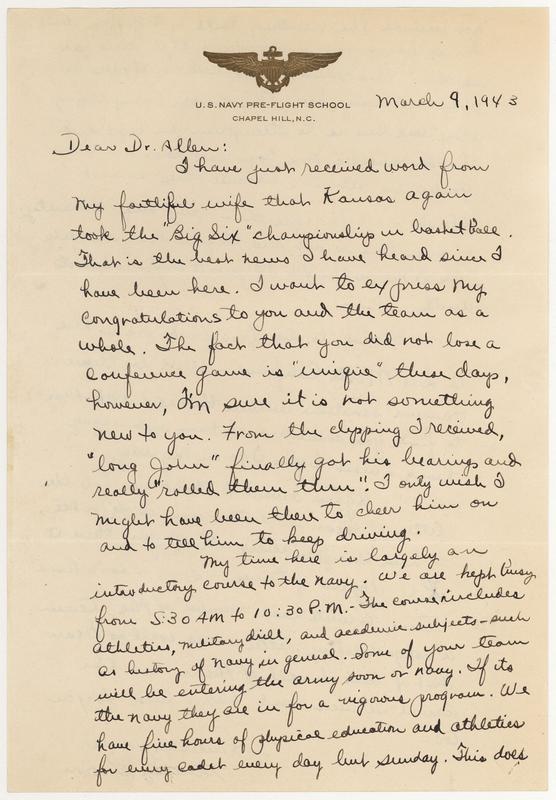 U.S. NAVY PRE-FLIGHT SCHOOL
CHAPEL HILL, N.C.
March 9, 1943
Dear Dr. Allen:
I have just received word from
my faithful wife that Kansas again
took the "Big Six" championship in basket ball.
That is the best news I have heard since I
have been here. I want to express my
congratulations to you and the team as a
whole. The fact that you did not lose a
conference game is "unique" these days,
however, I'm sure it is not something
new to you. From the clipping I received,
"long John" finally got his bearings and
really "rolled them thru". I only wish I
might have been there to cheer him on
and to tell him to keep driving.
My time here is largely an
introductory course to the navy. We are kept busy
from 5:30 AM to 10:30 P.M.- The course includes
athletics, military drill, and academic subjects - such
as history of navy in general. Some of your team
will be entering the army soon or navy. If its
the navy they are in for a vigorous program. We
have five hours of physical education and athletics
for every cadet every day but sunday. This does